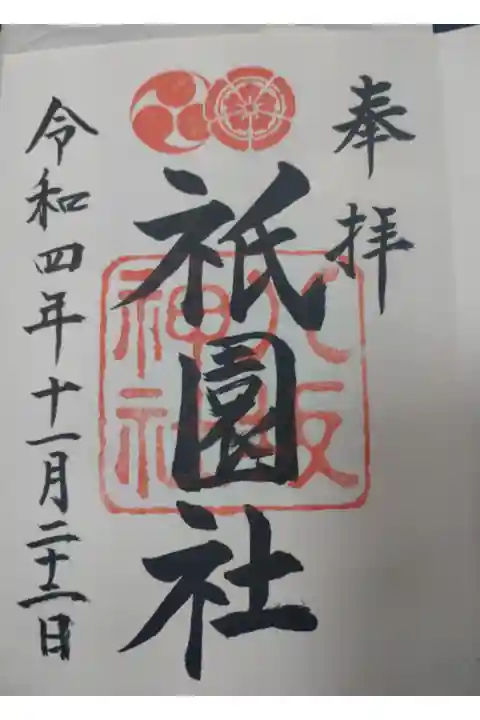 奉拝
祇園社
八坂
神社
令和四年十一月二十二日